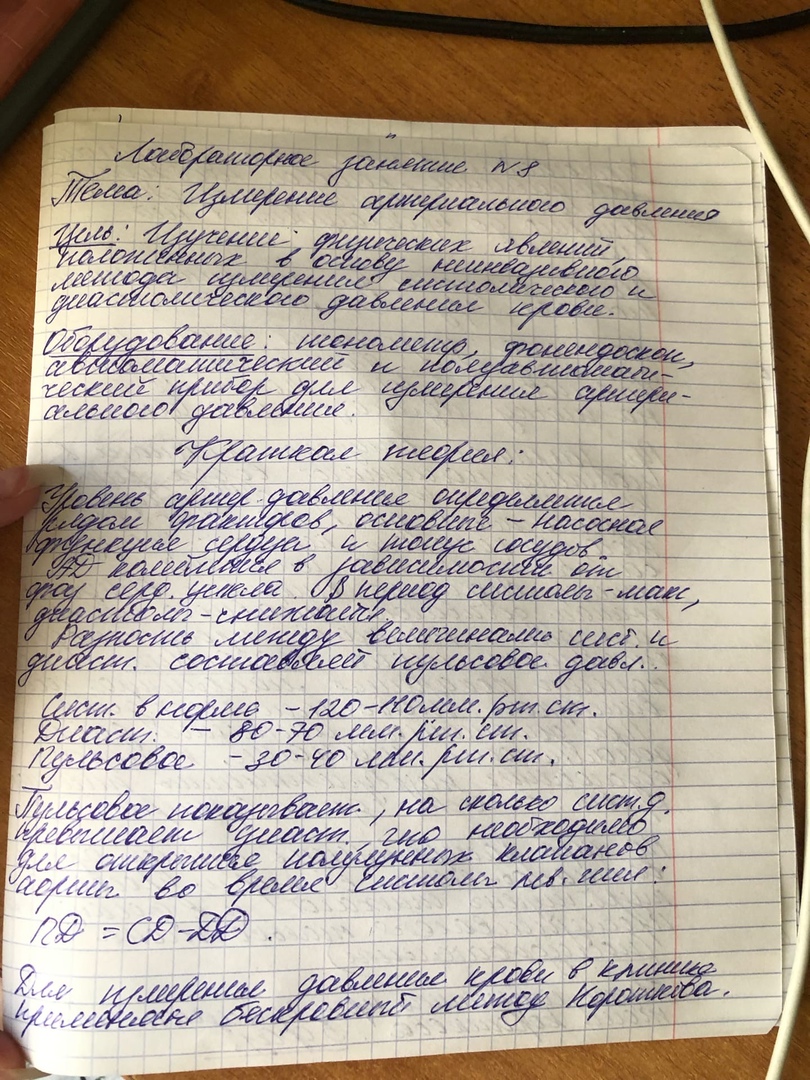 Лабораторное занятие N8
Тема: Измерение артериального давления
Цель: Изучение физических явлений,
положенных в основу неинвазивного
метода измерения систолического и
диастолического давления крови.
Оборудование: тонометр, фонендоскоп,
автоматический и полуавтомати-
ческий прибор для измерения артери-
ального давления.
Краткая теория:
Уровень артер. давления определяется
рядом факторов, основные – насосная
функция сердца и тонус сосудов
АД колеблется в зависимости от
фаз серд. цикла. В период систолы - мак,
диастолы - снижается
Разность между величинами сист. и
диаст. составляет пульсовое давл.
Сист. в норме - 120-110 мм.рт.ст.
Диаст. - 80-70 мм.рт.ст.
Пульсовое - 30-40 мм.рт.ст.
Пульсовое показывает, на сколько сист.д.
превышает диаст. что необходимо
для открытия полулунных клапанов
аорты во время систолы
ПД = СД-ДД.
Для измерения давления крови в клинике
применяется бескровный метод Короткова.